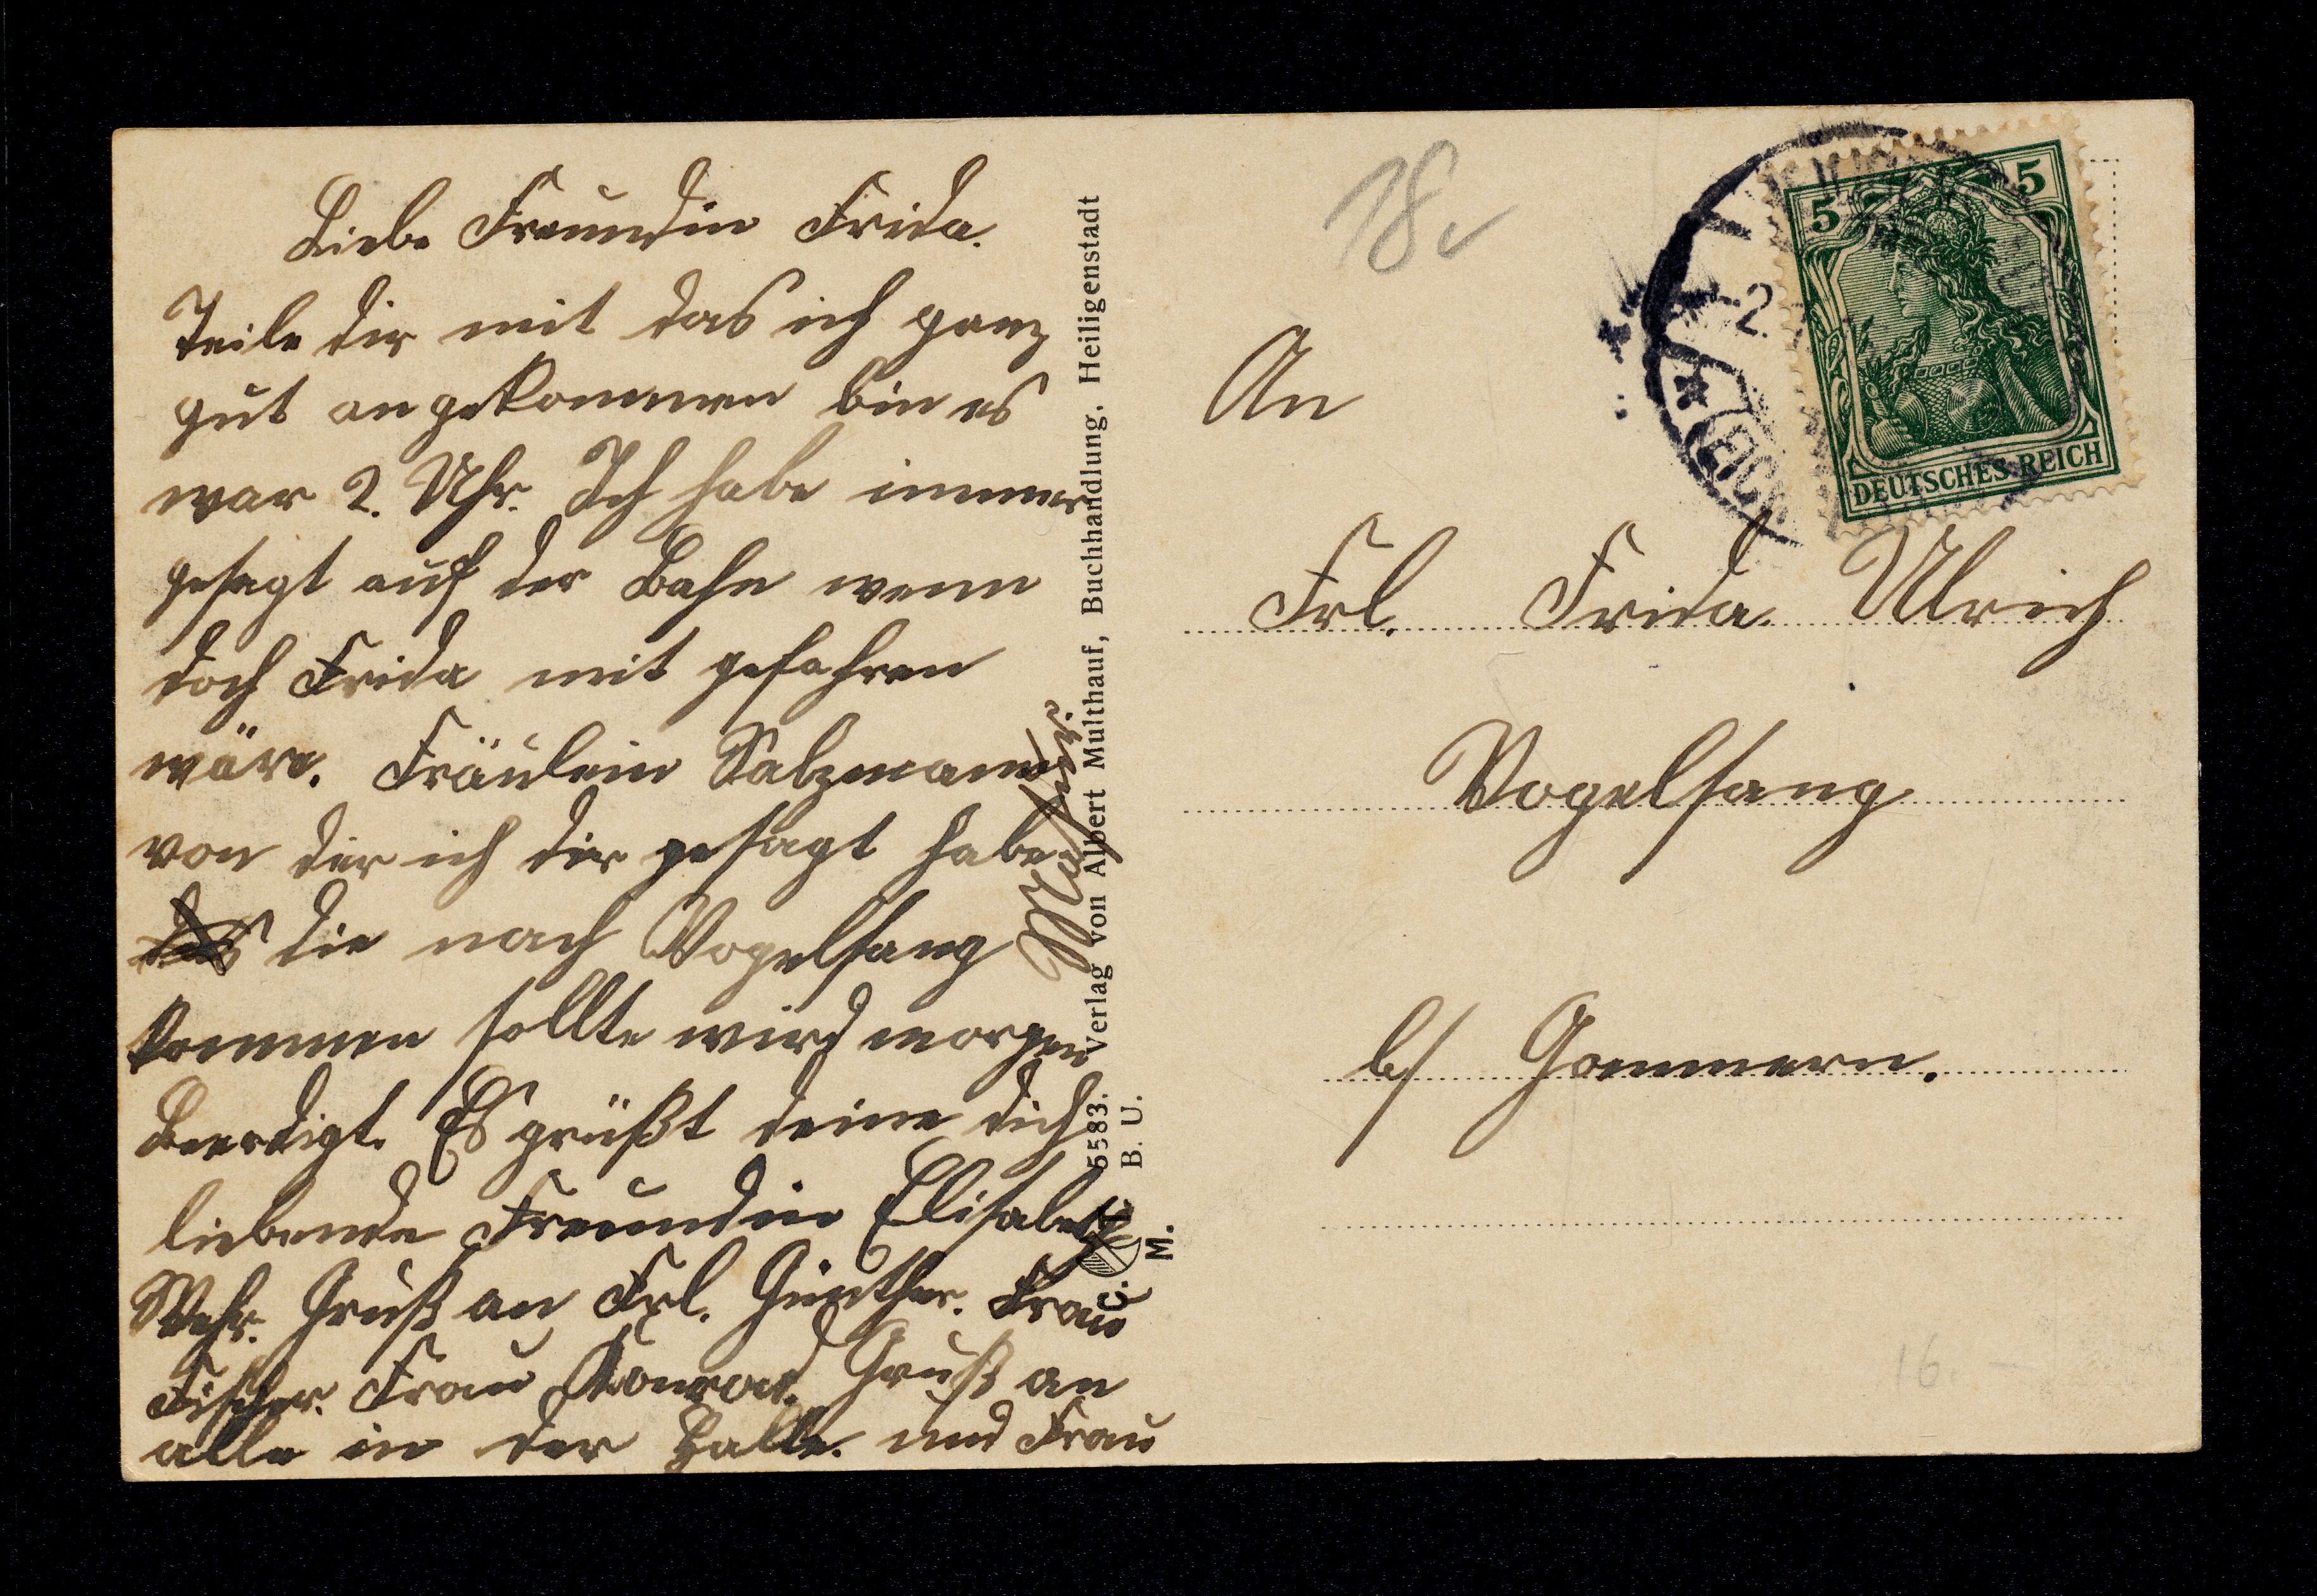 Liebe Freundin Frida.
Teile dir mit das ich ganz
gut angekommen bin es
war 2. Uhr. Ich habe immer
gesagt auf der Bahn wenn
doch Frida mit gefahren
wäre. Fräulein Salzmann
von der ich dir gesagt habe
die nach Vogelsang
kommen sollte wird morgen
Beerdigt. Es grüßt deine dich
liebende Freundin Elisabeth
Wehr. Gruß an Frl. Günther. Frau
Fischer. Frau Konrad. Gruß an
alle in der Halle. und Frau
5583. Verlag von Albert Multhauf, Buchhandlung, Heiligenstadt
B. U.
C.
M.
18
An
Frl. Frida Ulrich
Vogelsang
b/ Gommern.
16.
2.
(EICH
5 5
DEUTSCHES REICH